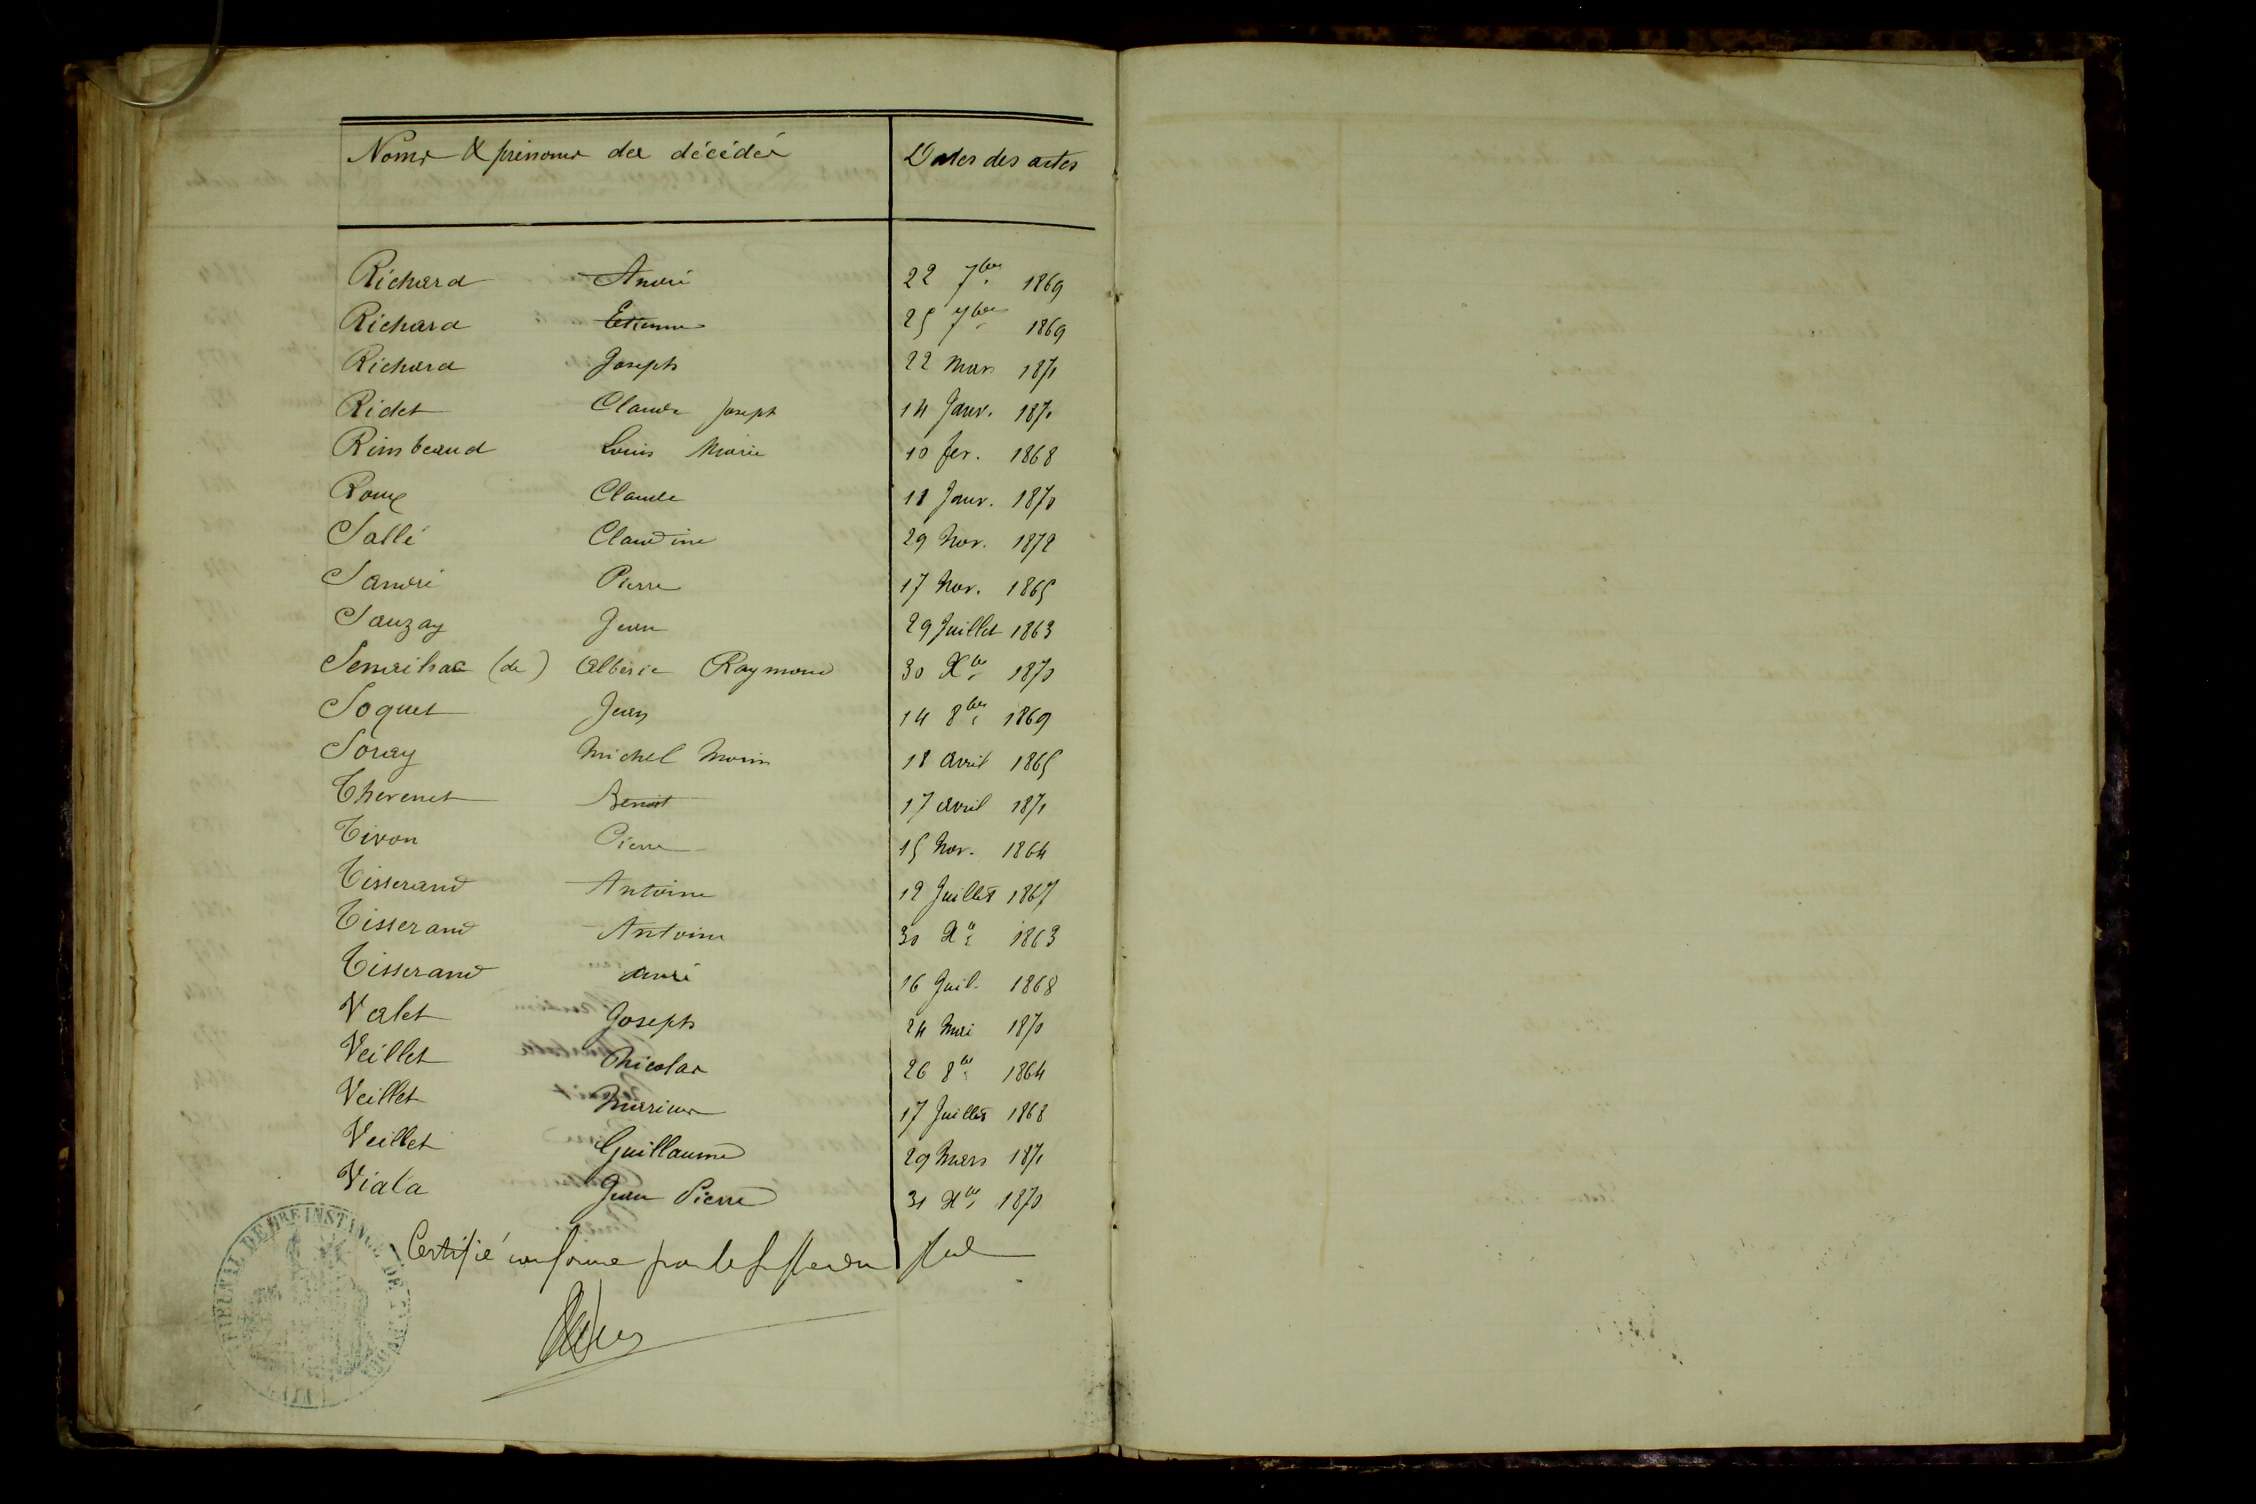 Noms & prénoms des décédés Dates des actes
Richard André 22 7bre 1869
Richard Etienne 25 7bre 1869
Richard Joseph 22 Mars 1871
Ridet Claude Joseph 14 Janv. 1871
Rimbaud Louis Marie 10 fev. 1868
Roux Claude 18 Janv. 1870
Sallé Claudine 29 Nov. 1872
Sandri Pierre 17 Nov. 1865
Sauzay Jean 29 Juillet 1863
(de) Albéric Raymond 30 Xbre 1870
Soquet Jean 14 8bre 1869
Soray Michel 18 Avril 1865
Thevenet Benoit 17 avril 1871
Tivon Pierre 15 Nov. 1864
Tisserand Antoine 12 Juillet 1867
Tisserand Antoine 30 Xre 1863
Tisserand André 16 Juil. 1868
Valet Joseph 24 Mai 1870
Veillet Nicolas 26 8bre 1864
Veillet 17 Juillet 1868
Veillet Guillaume 29 Mars 1871
Viala Jean Pierre 31 Xbre 1870
Certifié conforme par le
TRIBUNAL DE 1RE INSTANCE DE